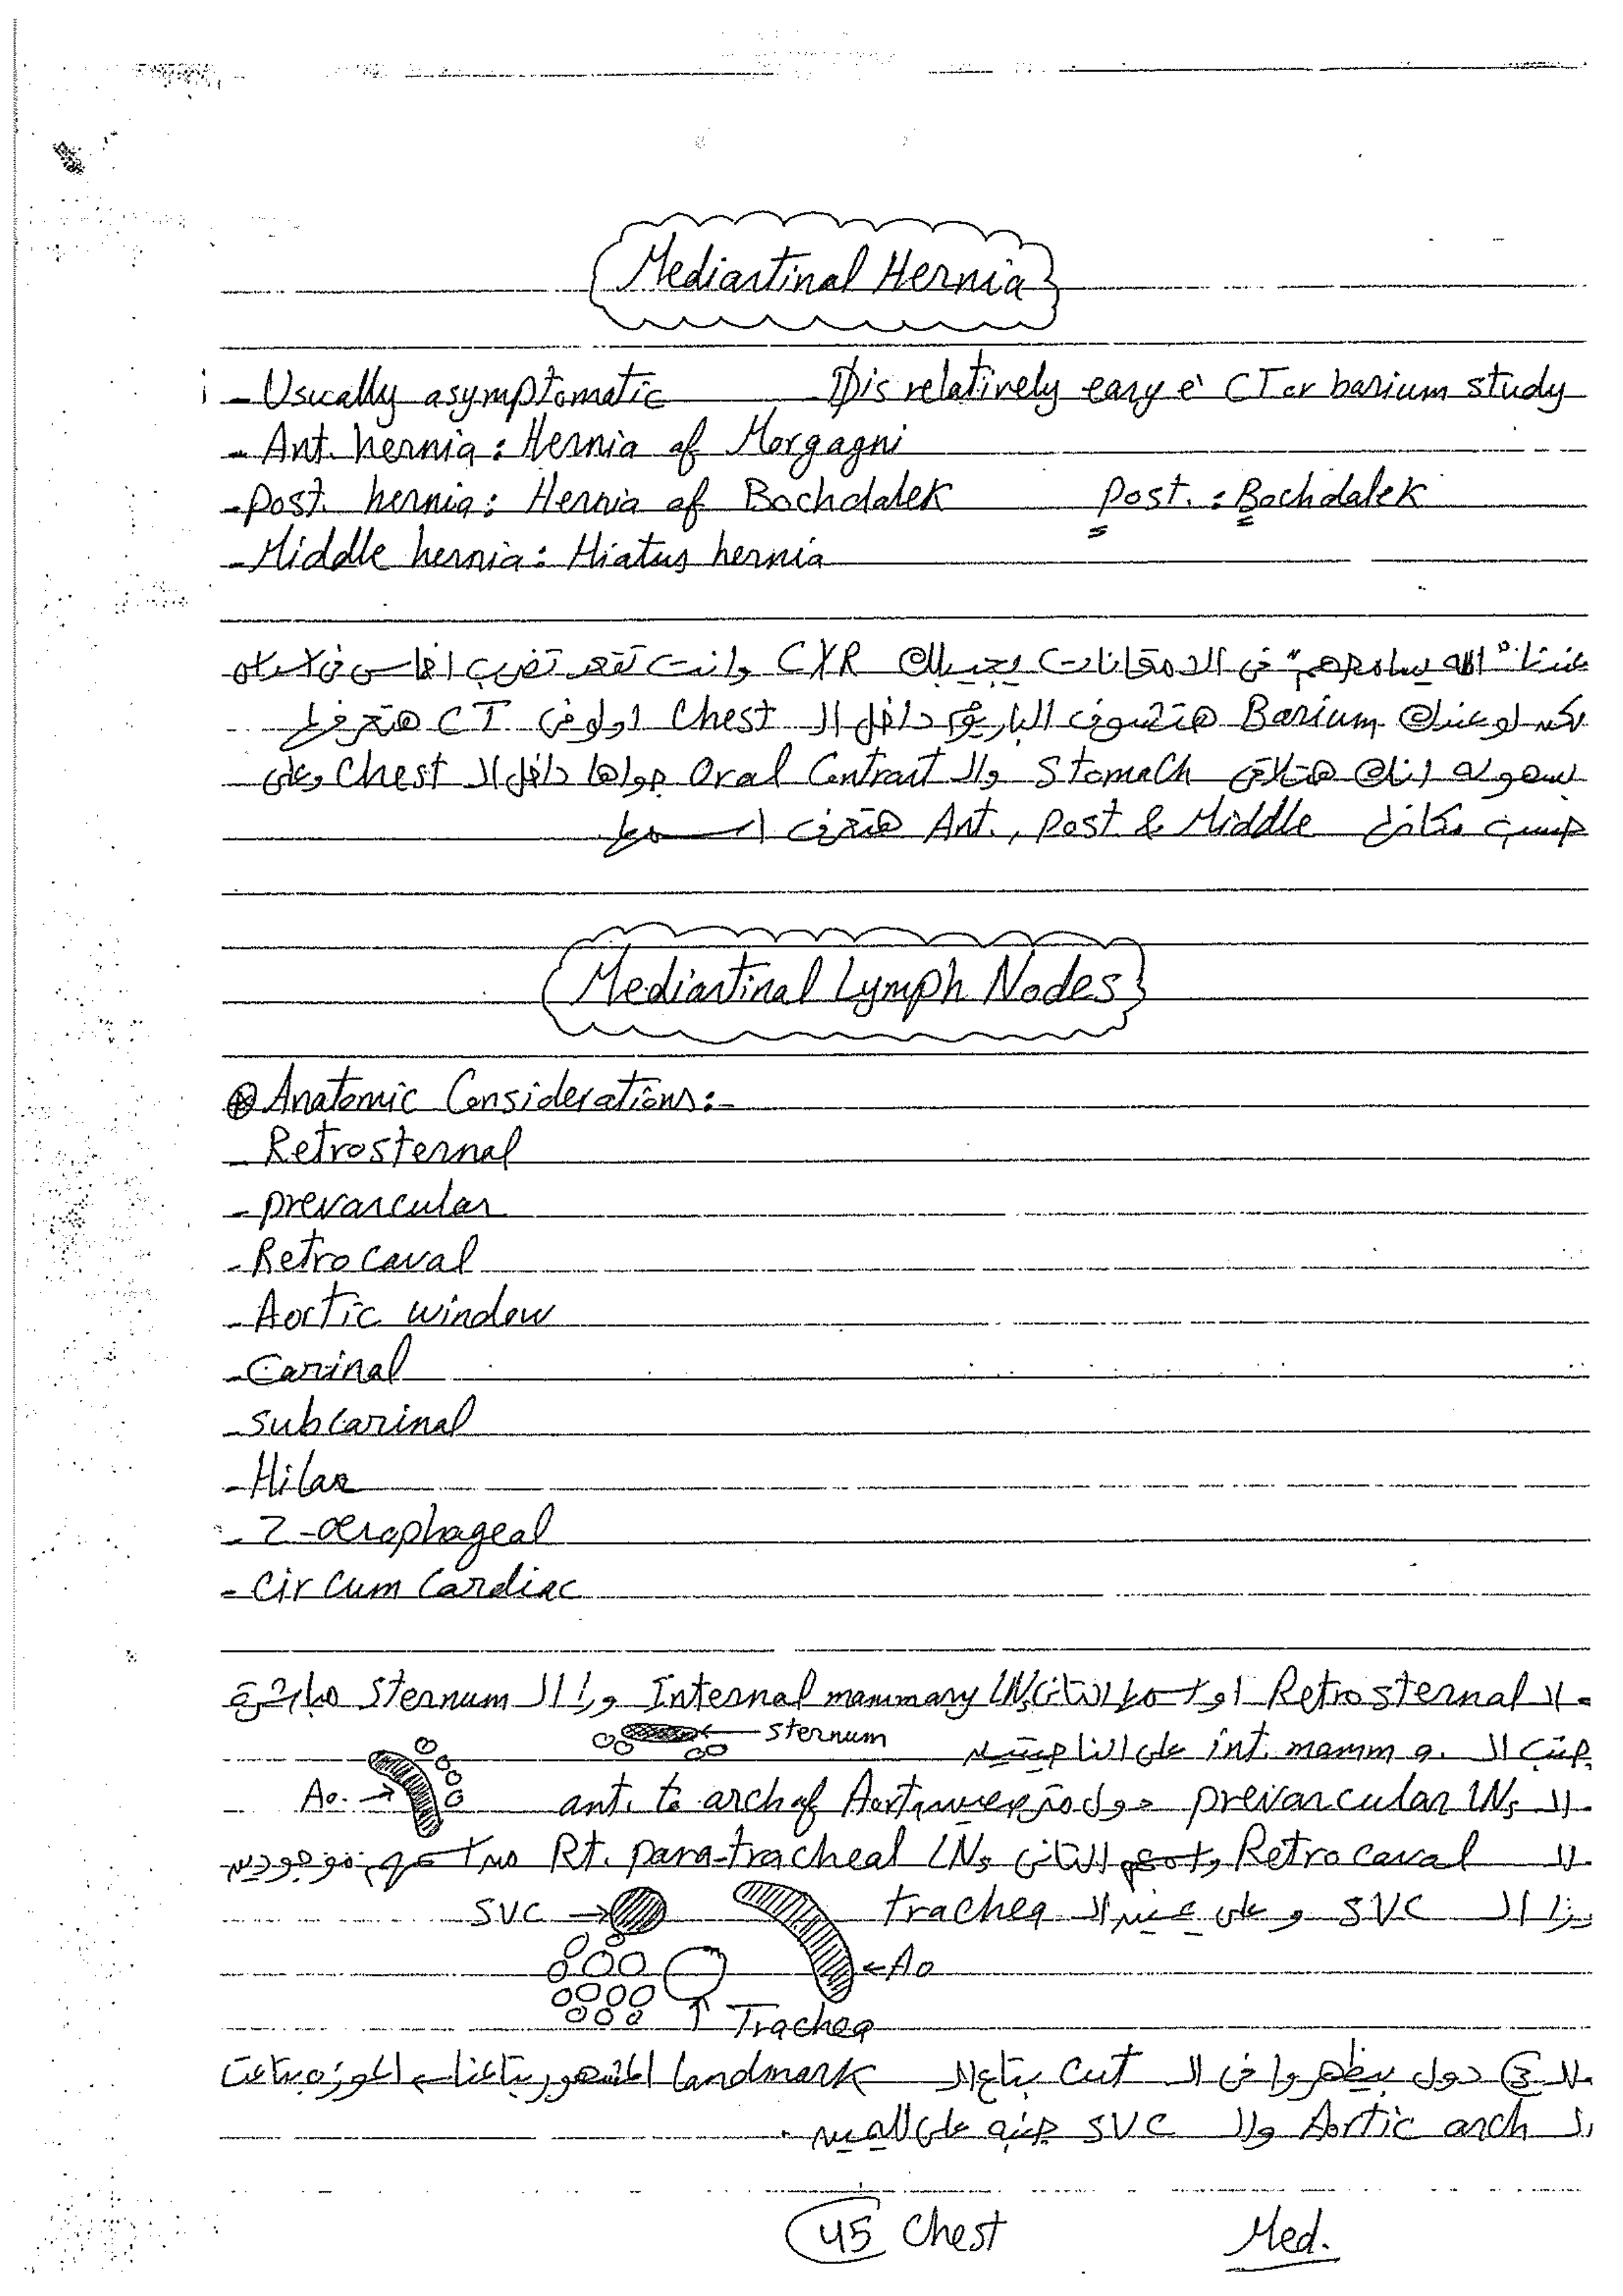 Mediastinal Hernia
- Usually asymptomatic D is relatively easy e' CT or barium study
- Ant. hernia : Hernia of Morgagni
- post. hernia : Hernia of Bochdalek post. : Bochdalek
- Middle hernia : Hiatus hernia
عندنا "الله يسامحهم" فى الامتحانات يجيبلك CXR وانت تقعد تضرب اخماس فى اسداس
لكن لو عندك Barium هتشوف الباريوم داخل الـ Chest او لو فى CT هتعرفها
بسهوله انك هتلاقى Stomach والـ Oral Contrast جواها داخل الـ Chest وعلى
حسب مكانها Ant., post & Middle هتعرف اسمها
Mediastinal Lymph Nodes
⊛ Anatomic Considerations :-
- Retrosternal
- prevascular
- Retrocaval
- Aortic window
- Carinal
- subcarinal
- Hilar
- Z-oesophageal
- Circum Cardiac
- الـ Retrosternal او اسمها التانى Internal mammary LNs ورا الـ Sternum مباشرة
جنب الـ int. mamm على الناحيتين
sternum
Ao.
- الـ prevascular LNs دول متوزعين ant. to arch of Aorta
- الـ Retrocaval واسمهم التانى Rt. para-tracheal LNs موجودين
ورا الـ SVC وعلى يمين الـ trachea
SVC
Ao
Trachea
- الـ ③ دول بيظهروا فى الـ Cut بتاع الـ landmark المشهور بتاعنا الموزه بتاعت
الـ Aortic arch والـ SVC جنبه على اليمين .
45 Chest Med.